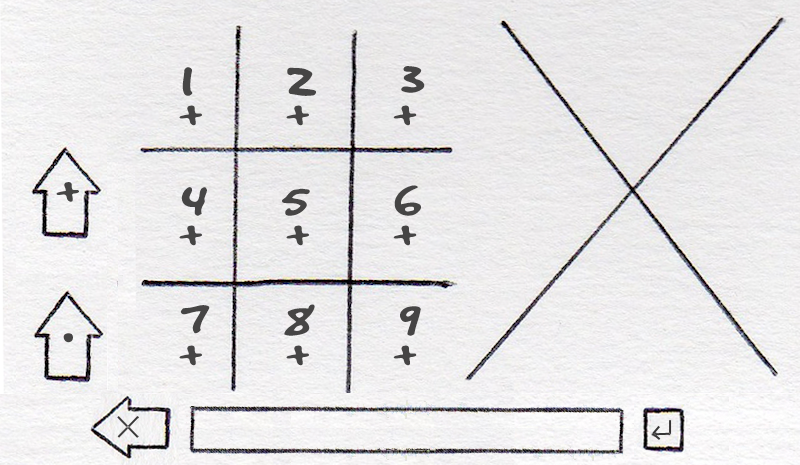 1 2 3
+ + +
+
4 5 6
+ + +
7 8 9
•
+ + +
×
↵